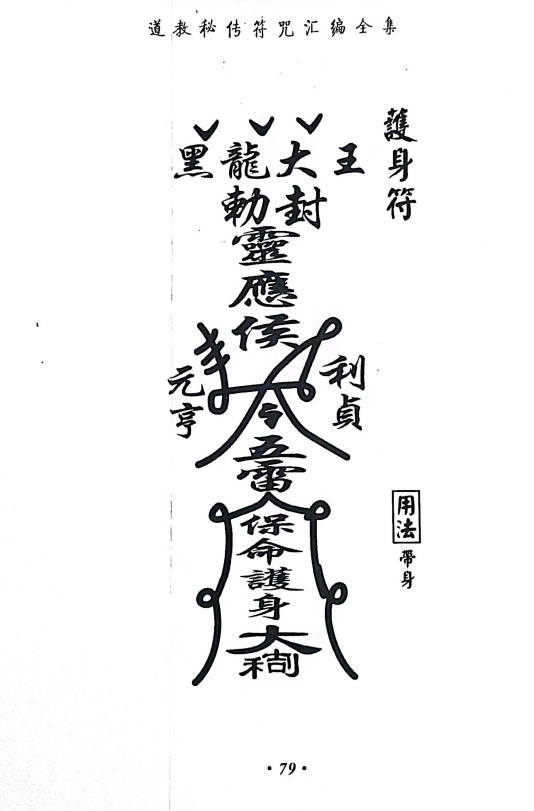 道教秘传符咒汇编全集
護身符
黑龍大王
勅封
靈
應
侯
元亨
利貞
令
五
雷
保
命
護
身
大
用法
帶身
·79·